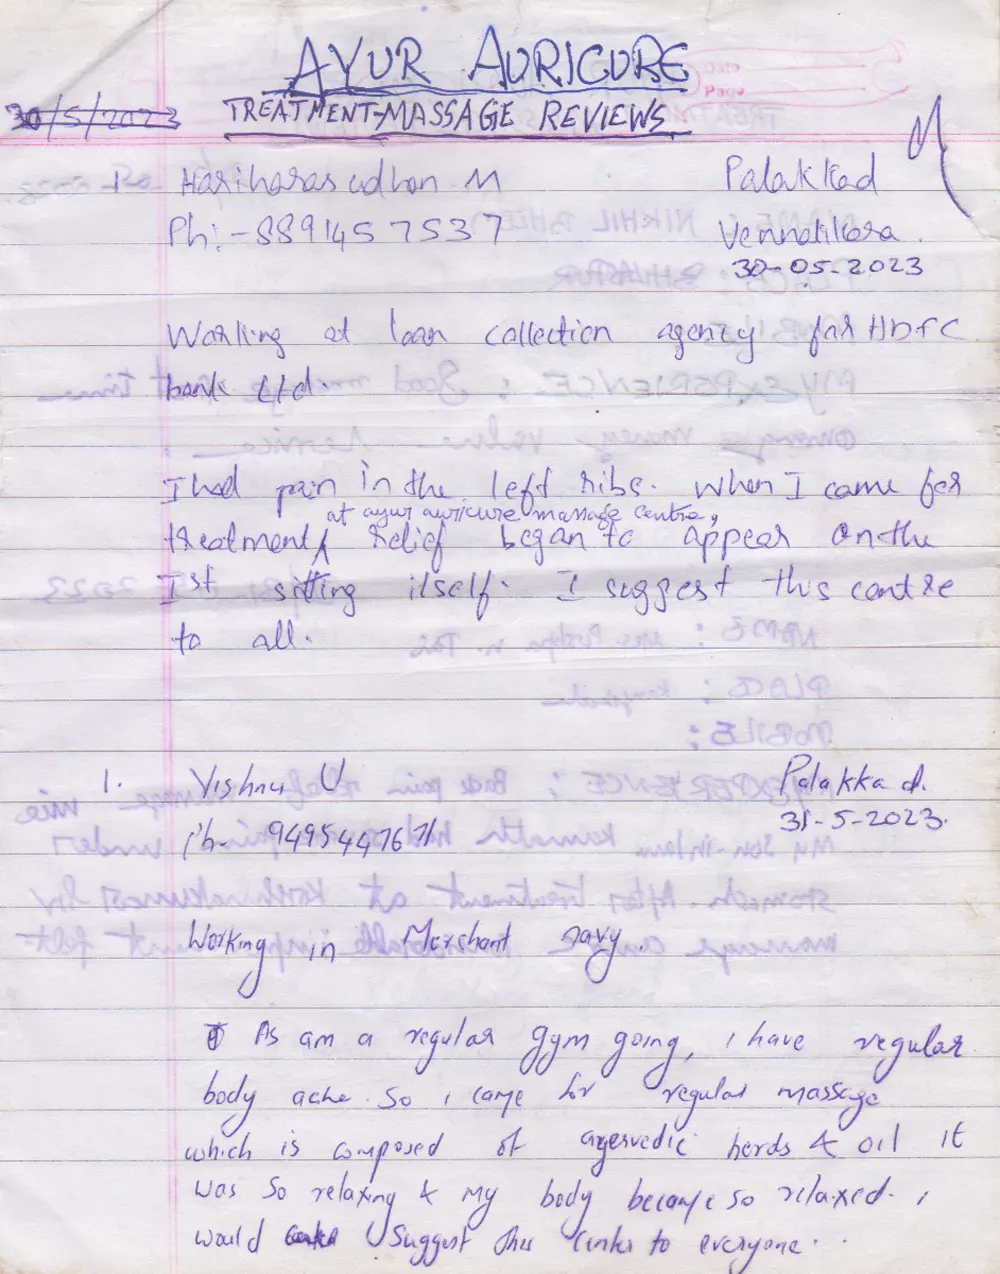 AYUR AURICURE
30/5/2023 TREATMENT-MASSAGE REVIEWS
1. Hariharasudhan M Palakkad
Ph:- 8891457537 Vennakkara.
30-05-2023
Working at loan collection agency for HDFC
bank Ltd.
I had pain in the left ribs. When I came for
at ayur auricure massage centre,
treatment relief began to appear on the
Ist sitting itself. I suggest this centre
to all.
1. Vishnu U Palakkad.
Ph- 31-5-2023.
Working in Merchant navy.
As am a regular gym going, i have regular
body ache. So i came for regular massage
which is composed of ayervedic herds & oil it
was so relaxing & my body became so relaxed. i
would suggest this to everyone.